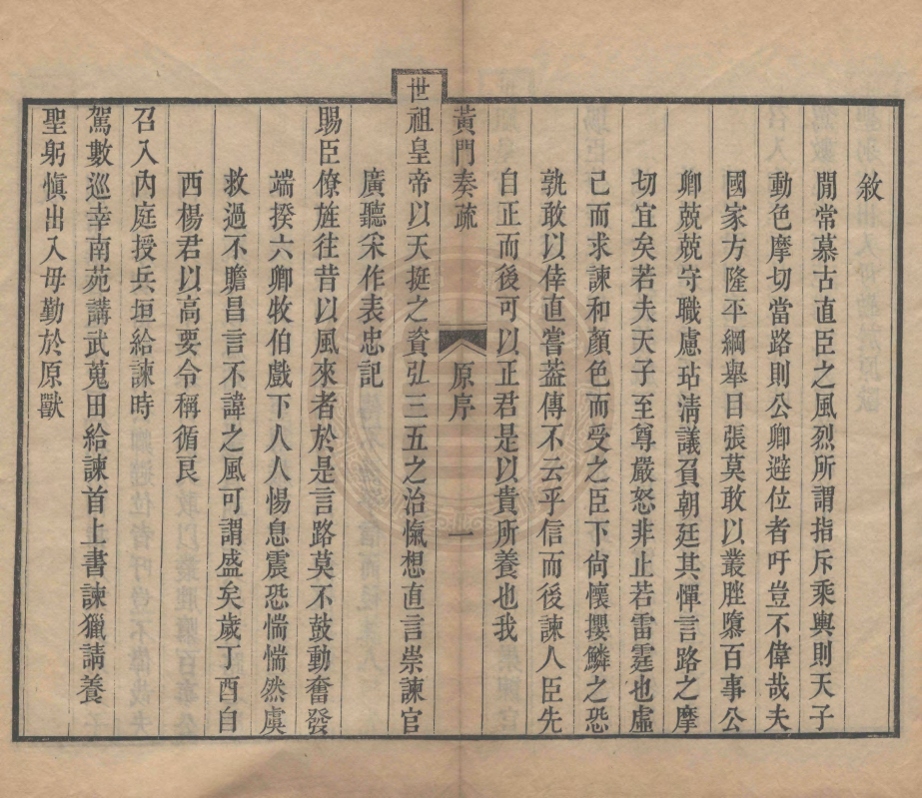 敘
閒常慕古直臣之風烈所謂指斥乘輿則天子
動色摩切當路則公卿避位者吁豈不偉哉夫
國家方隆平綱舉目張莫敢以叢脞隳百事公
卿兢兢守職慮玷淸議負朝廷其憚言路之摩
切宜矣若夫天子至尊嚴怒非止若雷霆也虛
己而求諫和顏色而受之臣下尙懷攖鱗之恐
孰敢以倖直嘗葢傳不云乎信而後諫人臣先
自正而後可以正君是以貴所養也我
黃門奏疏
原序
一
世祖皇帝以天挺之資弘三五之治愾想直言崇諫官
廣聽采作表忠記
賜臣僚旌往昔以風來者於是言路莫不鼓動奮發
端揆六卿牧伯戲下人人惕息震恐惴惴然虞
救過不贍昌言不諱之風可謂盛矣歲丁酉自
西楊君以高要令稱循良
召入內庭授兵垣給諫時
駕數巡幸南苑講武蒐田給諫首上書諫獵請養
聖躬愼出入毋勤於原獸